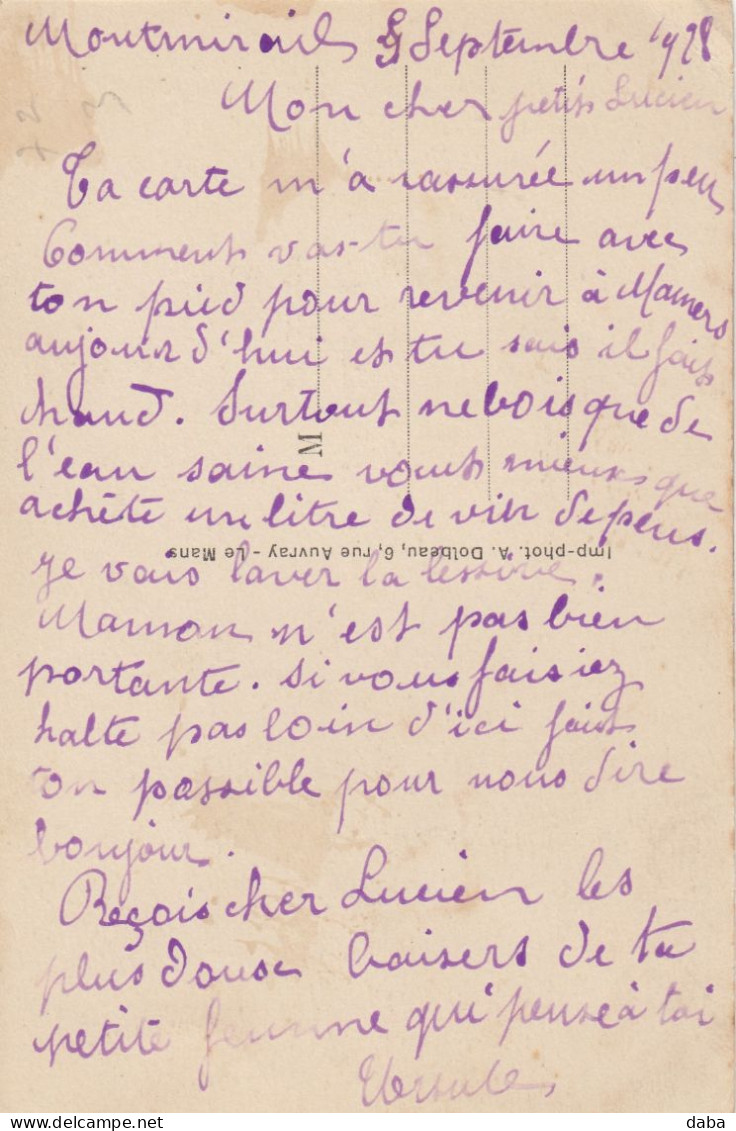 Montmirail 9 Septembre 1928
Mon cher petit Lucien
Ta carte m'a rassurée un peu
Comment vas-tu faire avec
ton pied pour revenir à Mamers
aujourd'hui es tu sais il fait
chaud. Surtout ne bois que de
l'eau saine vous mieux que
achète un litre de vin de peus.
Je vais laver la lessive.
Maman n'est pas bien
portante. Si vous faisiez
halte pas loin d'ici fait
ton possible pour nous dire
bonjour.
Reçois cher Lucien les
plus doux baisers de ta
petite femme qui pense à toi
M
Imp-phot. A. Dolbeau, 6, rue Auvray - Le Mans
daba